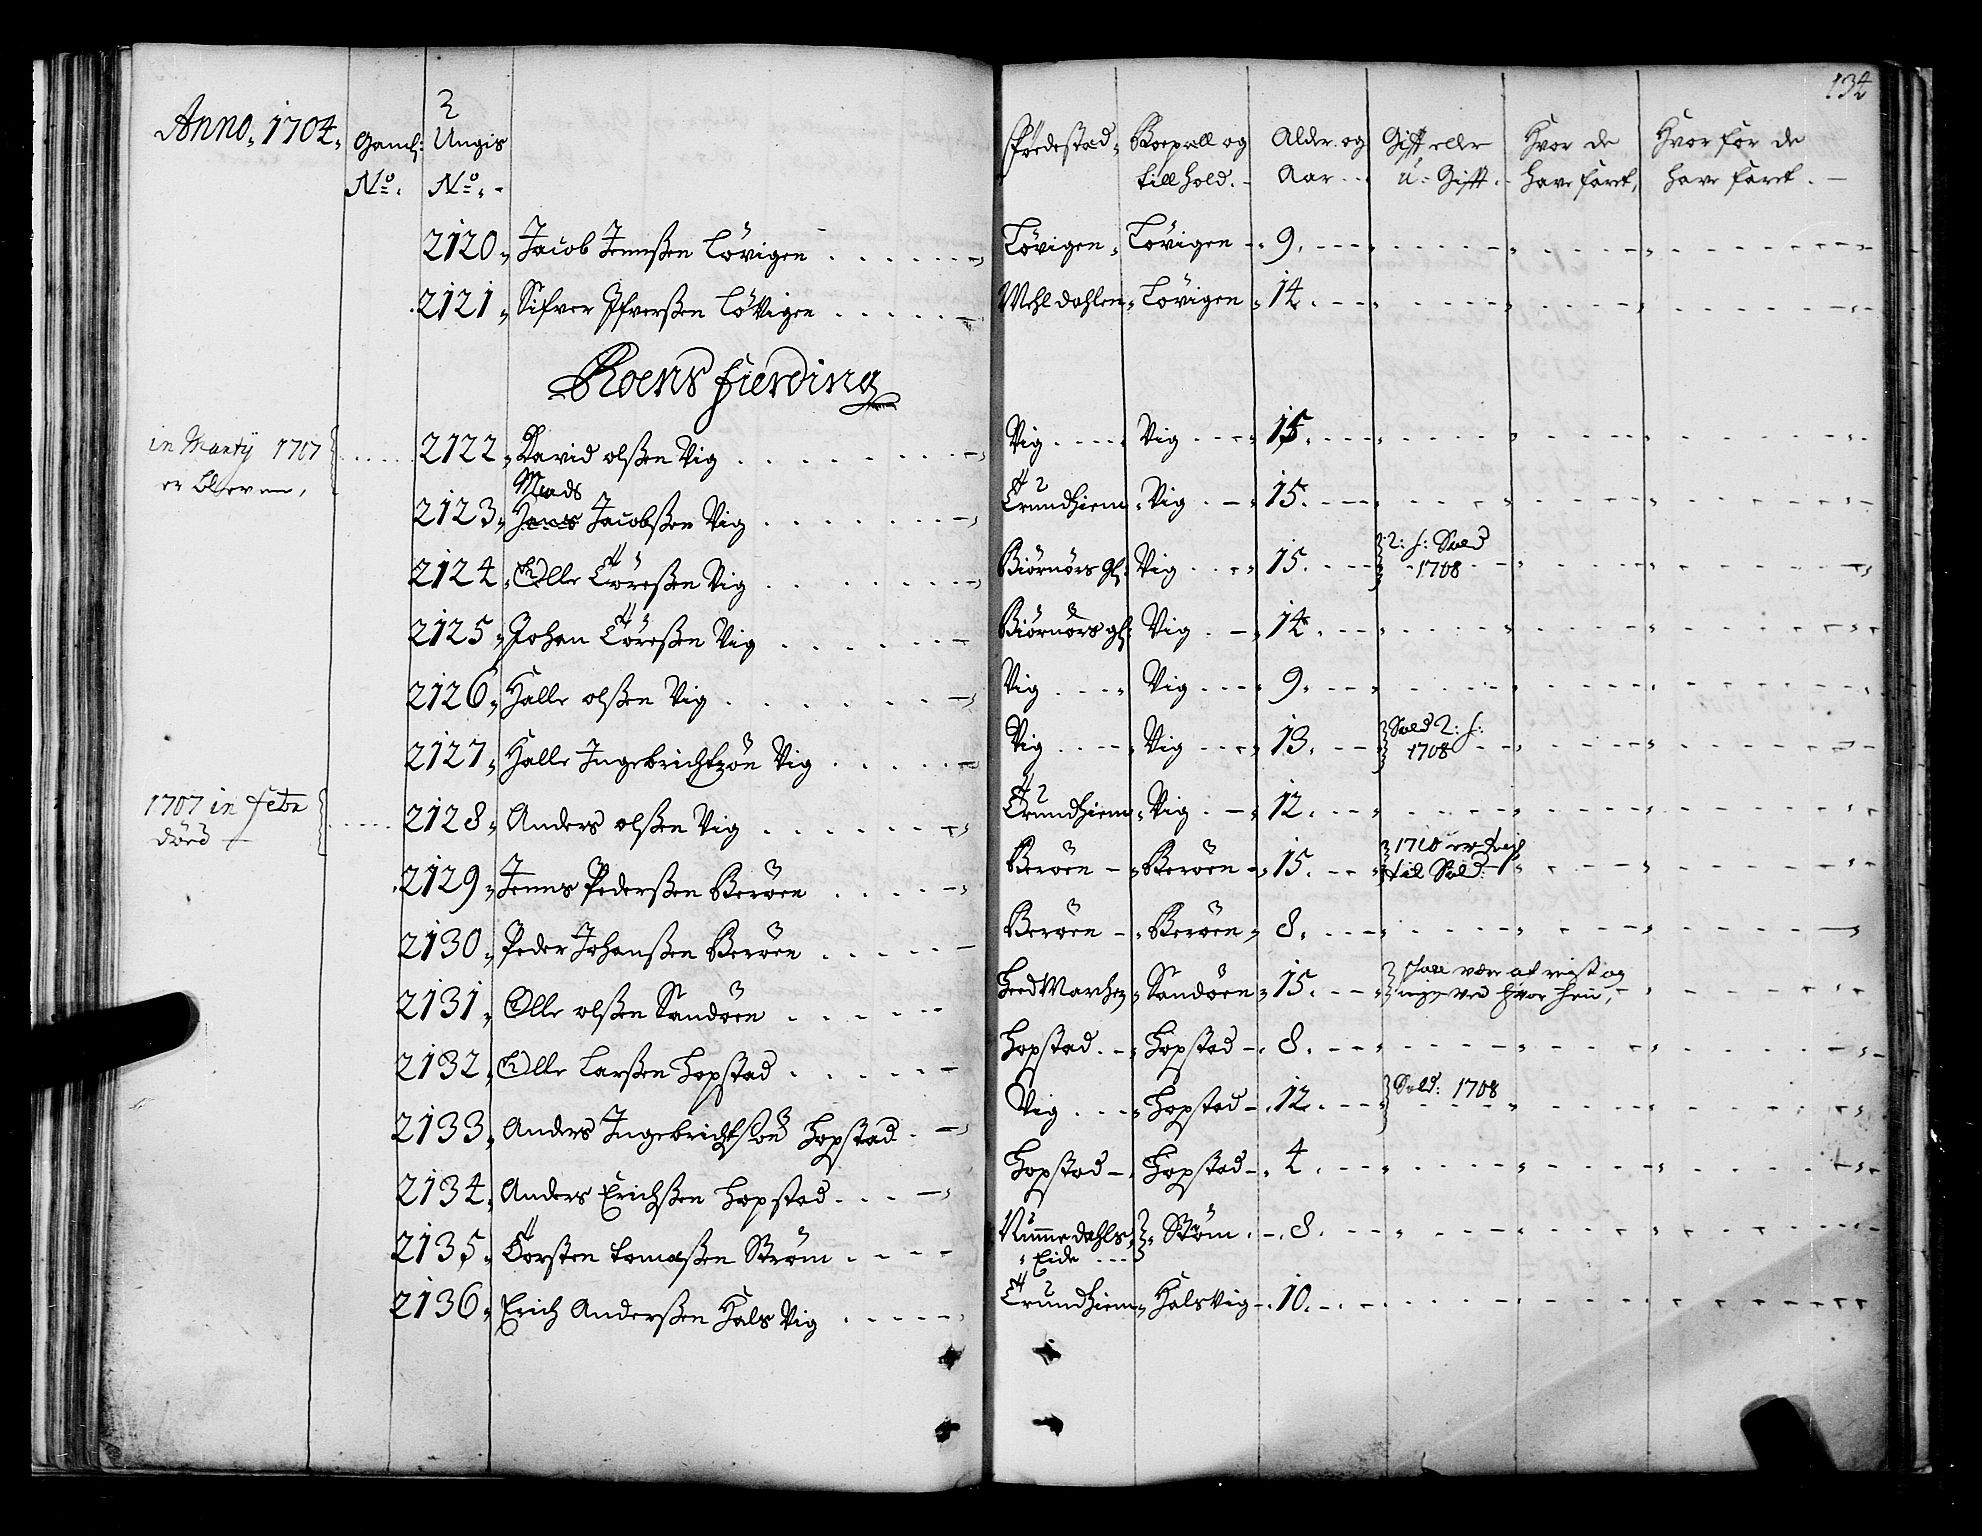 134
Anno 1704. Gaml: No: 2 Ungis No: Fødestad Boepæll og tillhold. Alder og Aar Gifft eller u-Gifft Hvor de have faret, Hvorfor de have faret.
2120 Jacob Jennsßen Løvigen Løvigen Løvigen 9
2121 Sifver Ifversßen Løvigen Mehldahlen Løvigen 14
Roens fierding
in Martÿ 1707 er bleven, 2122 David olsßen Vig Vig Vig 15
Mads
2123 Hans Jacobsßen Vig Trundhiem Vig 15
2124 Olle Tøresßen Vig Biørnørs gl: Vig 15 2: f: Sold 1708
2125 Johan Tøresßen Vig Biørnørs gl: Vig 14
2126 Halle olsßen Vig Vig Vig 9
2127 Halle Ingebrichtzøn Vig Vig Vig 13 Sold 2: f: 1708
1707 in febr død 2128 Anders olsßen Vig Trundhiem Vig 12
2129 Jenns Pedersßen Berøen Berøen Berøen 15 1710 er til Sold:
2130 Peder Johansßen Berøen Berøen Berøen 8
2131 Olle olsßen Sandøen Hedmarchen Sandøen 15 skall være af reist og ingen ved hvor hen,
2132 Olle Larsßen Hopstad Hopstad Hopstad 8
2133 Anders Ingebrichtsøn Hopstad Vig Hopstad 12 Sold: 1708
2134 Anders Erichsßen Hopstad Hopstad Hopstad 4
2135 Torsten tomasßen Strøm Nummedahls Eide Strøm 8
2136 Erich Andersßen HalsVig Trundhiem HalsVig 10